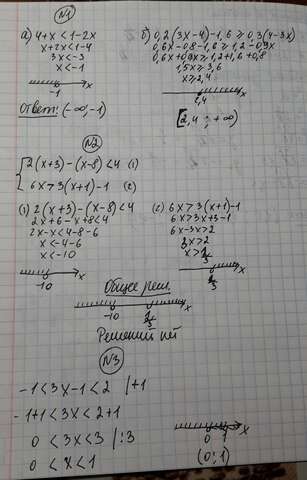 N1
a) 4+x<1-2x
x+2x<1-4
3x<-3
x<-1
-1 x
Ответ: (-∞,-1)
б) 0,2(3x-4)-1,6≥0,3(4-3x)
0,6x-0,8-1,6≥1,2-0,9x
0,6x+0,9x≥1,2+1,6+0,8
1,5x≥3,6
x≥2,4
2,4 x
[2,4;+∞)
N2
{2(x+3)-(x-8)<4 (1)
6x>3(x+1)-1 (2)
(1) 2(x+3)-(x-8)<4
2x+6-x+8<4
2x-x<4-8-6
x<-4-6
x<-10
-10 x
(2) 6x>3(x+1)-1
6x>3x+3-1
6x-3x>2
3x>2
x>2/3
2/3 x
Общее реш.
-10 2/3 x
Решений нет
N3
-1<3x-1<2 |+1
-1+1<3x<2+1
0<3x<3 |:3
0<x<1
0 1 x
(0;1)